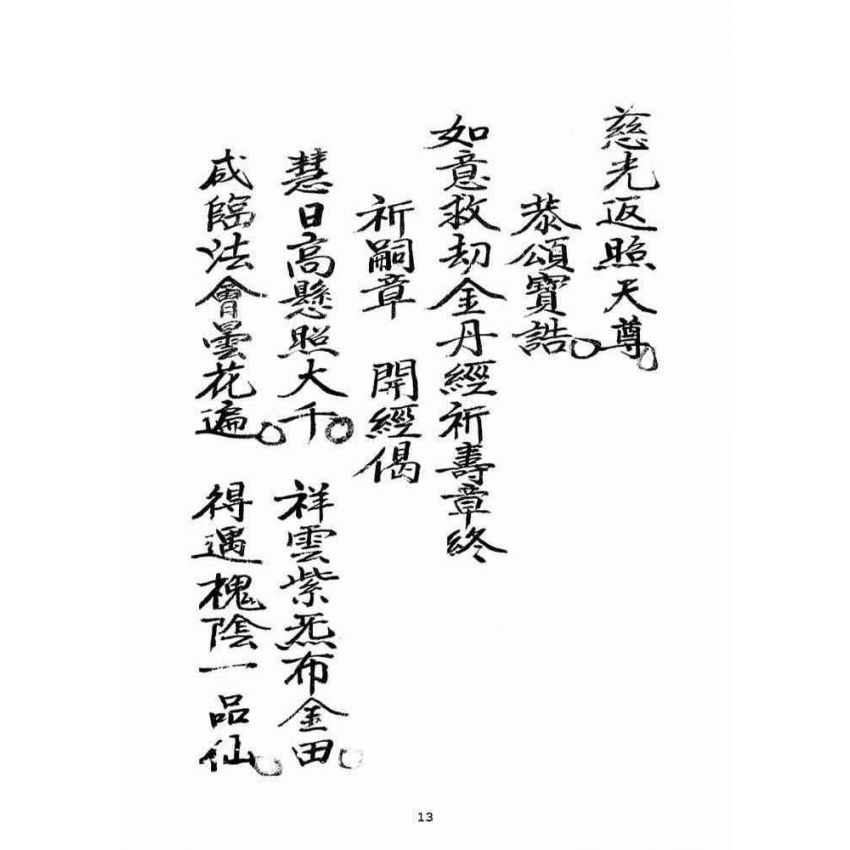 慈光返照天尊。
恭頌寶誥。
如意救劫金丹經祈壽章終
祈嗣章　開經偈
慧日高懸照大千。　祥雲紫炁布金田。
咸臨法會曇花遍。　得遇槐陰一品仙。
13